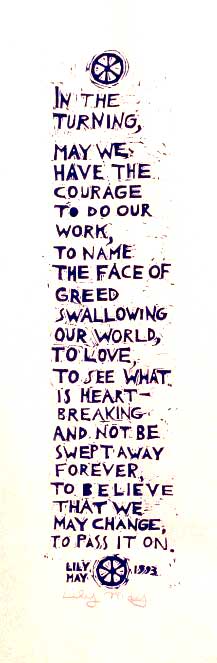 IN THE
TURNING,
MAY WE
HAVE THE
COURAGE
TO DO OUR
WORK,
TO NAME
THE FACE OF
GREED
SWALLOWING
OUR WORLD,
TO LOVE,
TO SEE WHAT
IS HEART-
BREAKING
AND NOT BE
SWEPT AWAY
FOREVER,
TO BELIEVE
THAT WE
MAY CHANGE,
TO PASS IT ON.
LILY 1993
MAY
Lily May